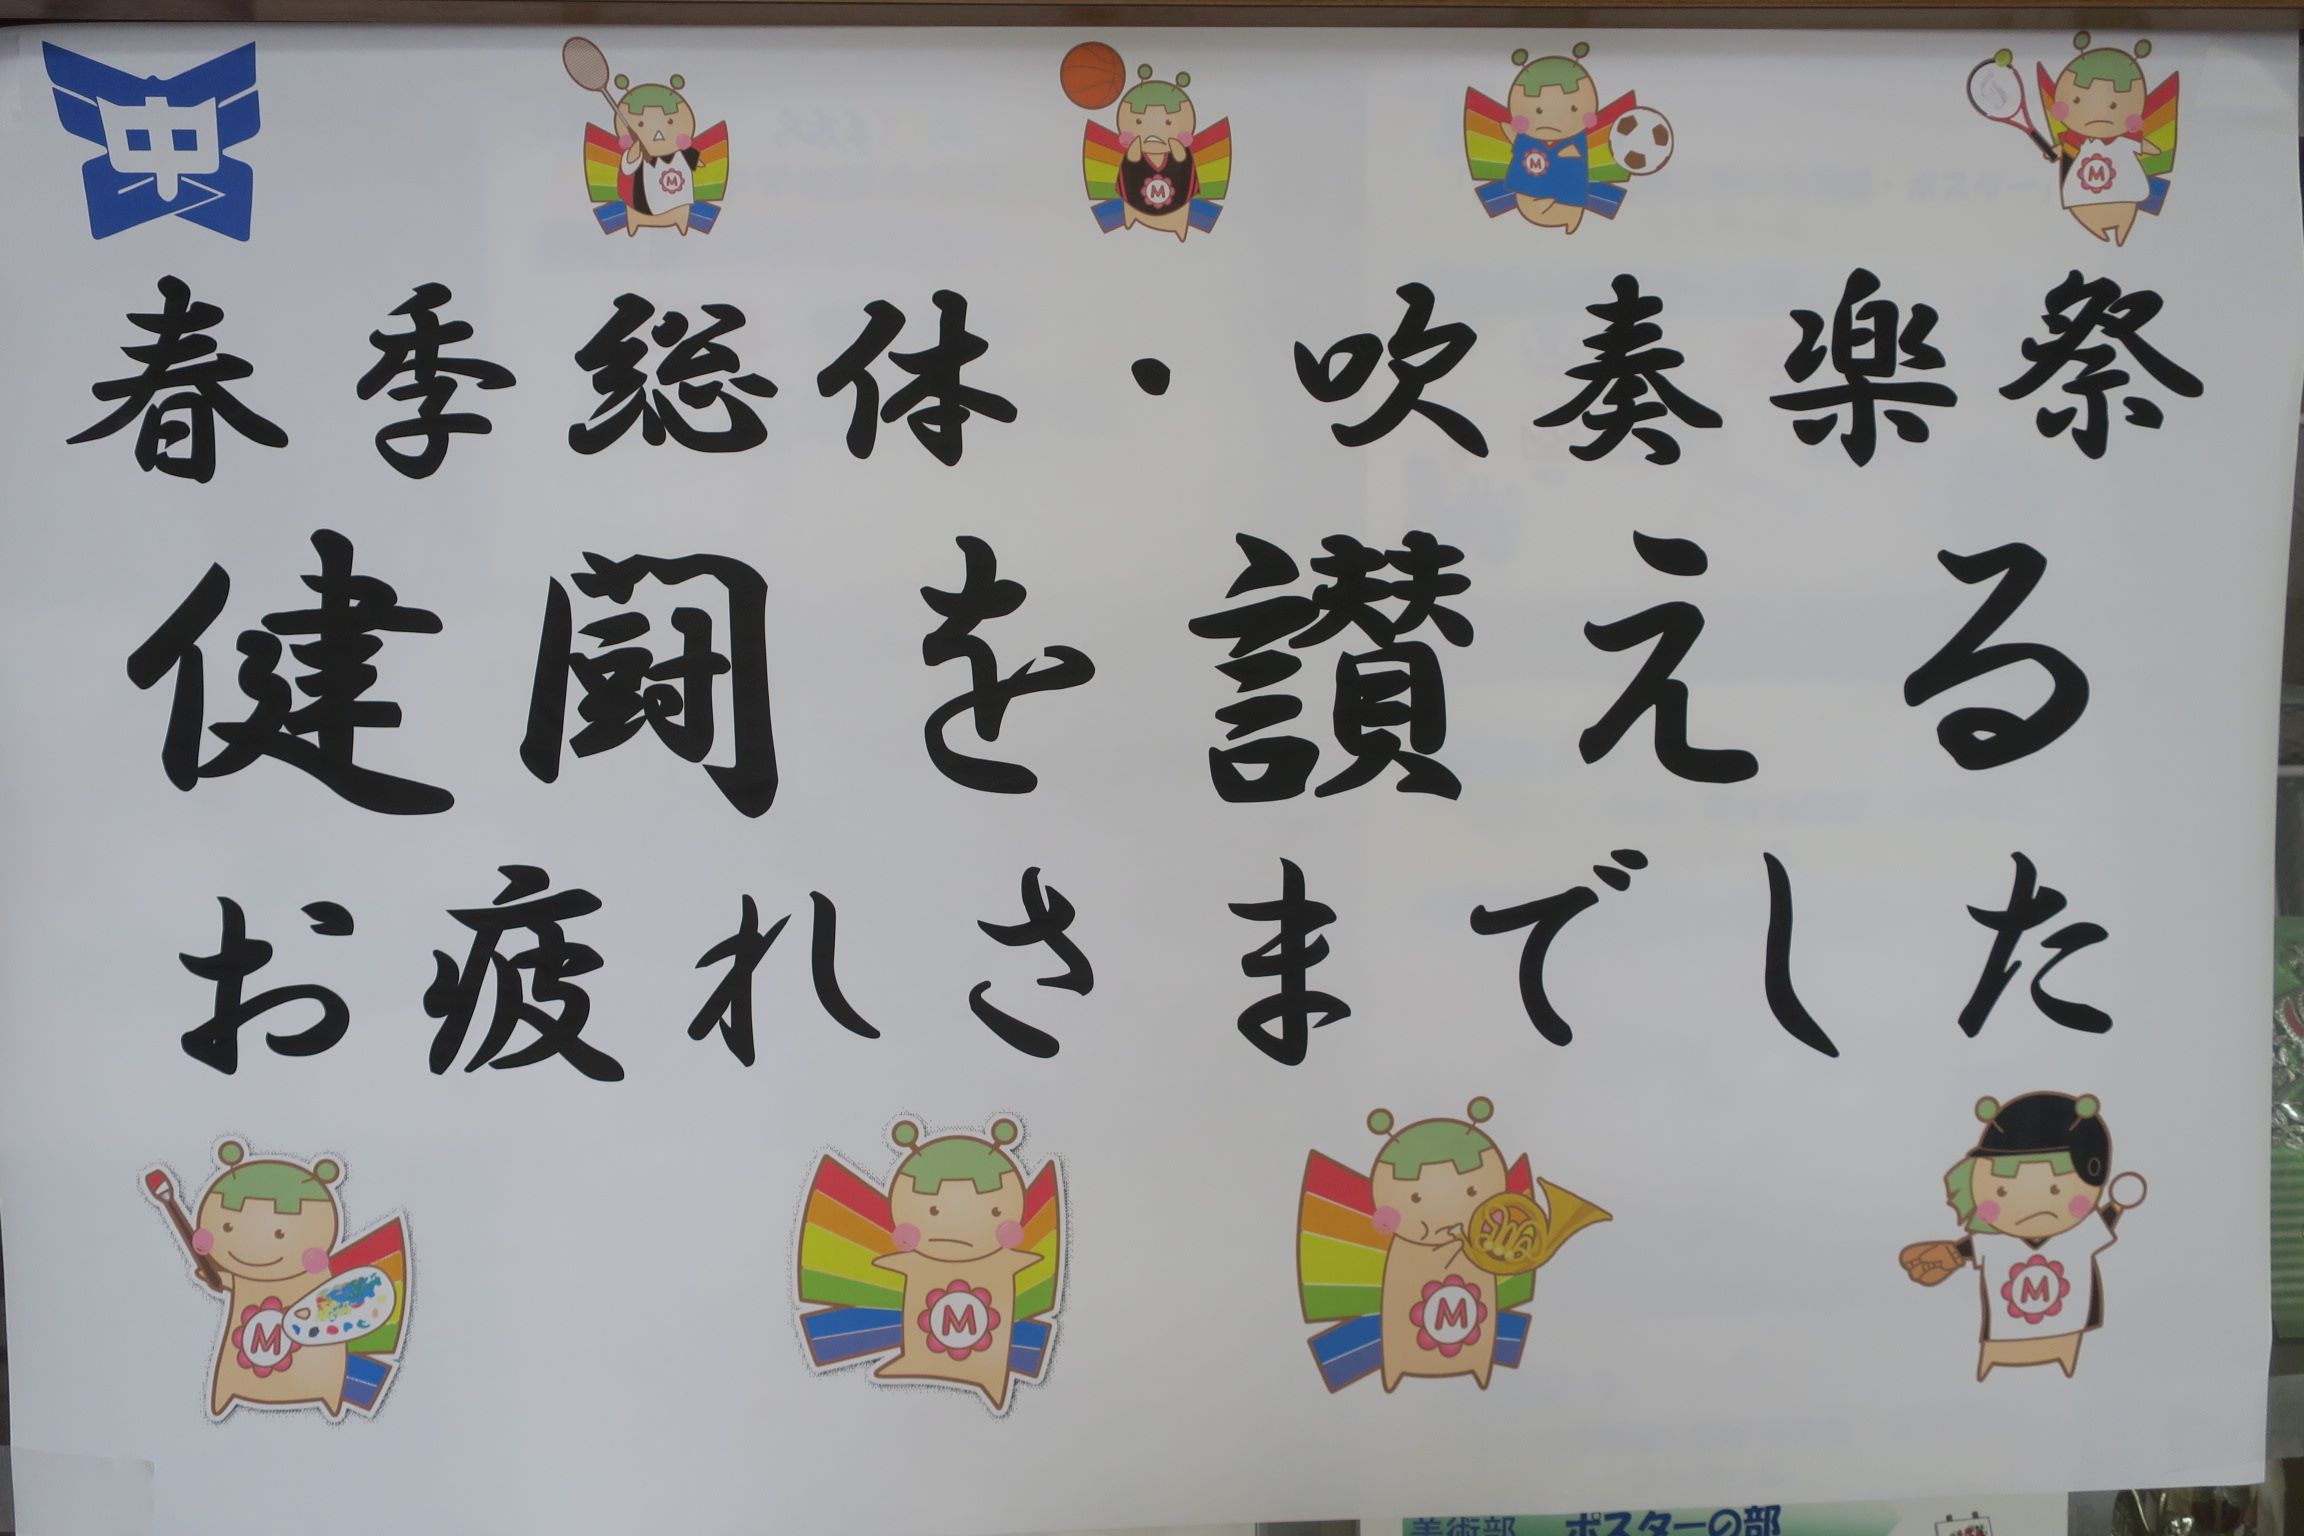 中
M M M M
春季総体・吹奏楽祭
健闘を讃える
お疲れさまでした
M M M M
美術部 ポスターの部